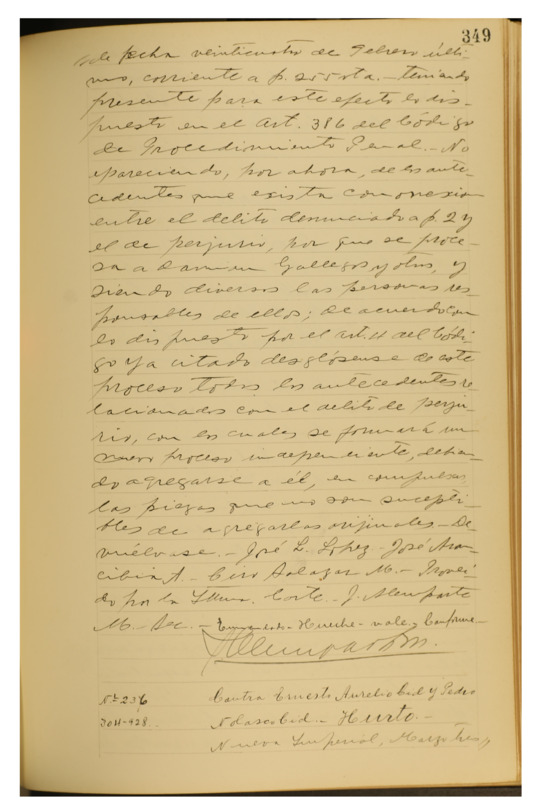 349
de fecha veinticuatro de Febrero últi-
mo, corriente a f. 255 vta. - teniendo
presente para este efecto lo dis-
puesto en el Art. 386 del Código
de Procedimiento Penal. - No
apareciendo, por ahora, de los ante-
cedentes que exista conexion
entre el delito denunciado a f. 2 y
el de perjurio, por que se proce-
sa a Gallegos y otros, y
siendo diversos las personas res-
ponsables de ellos; de acuerdo con
lo dispuesto por el art. 11 del Códi-
go ya citado desglósense de este
proceso todos los antecedentes re-
lacionados con el delito de perju-
rio, con los cuales se formará un
nuevo proceso independiente, debien-
do agregarse a él, en compulsas,
las piezas que no son sucepti-
bles de agregarlas originales - De-
vuélvase. - José L. López - José Aran-
cibia A. - Ciro Salazar M. - Provei-
do por la Iltma. Corte. - J. Alemparte
M. - Sec. - Enmendado - Hueche - vale y Conforme -
N° 236 Contra Ernesto Aurelio Cid y Pedro
Nolasco Cid. - Hurto. -
Nueva Imperial, Marzo tres